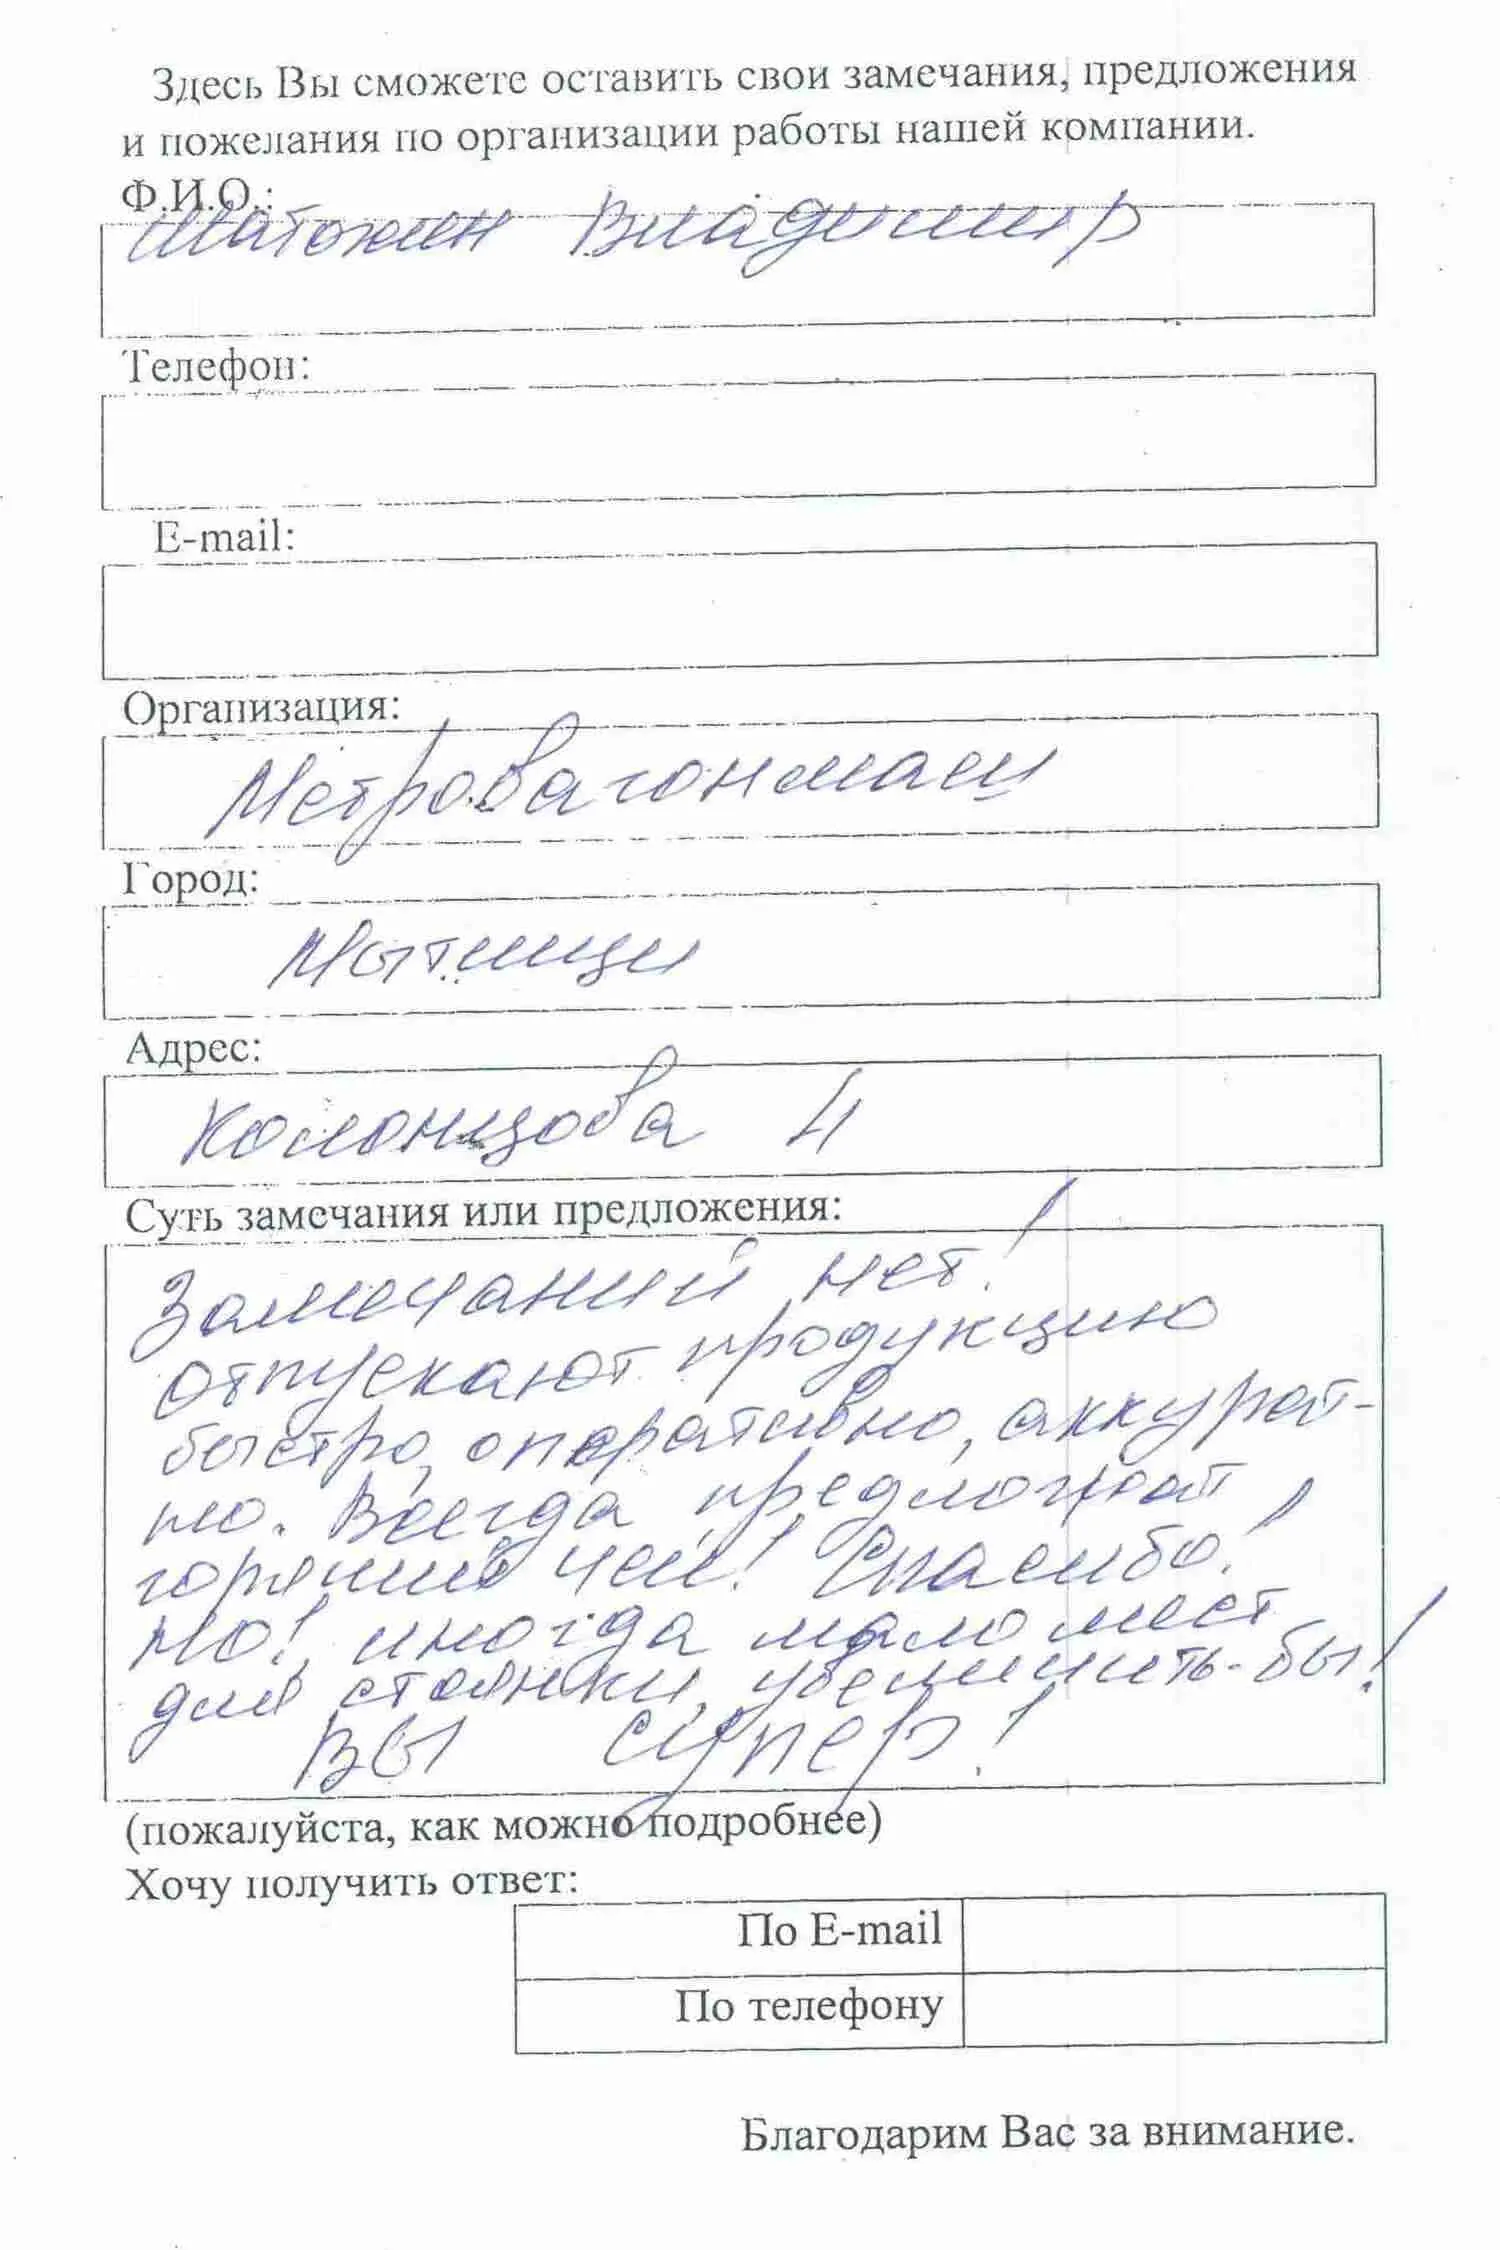 Здесь Вы сможете оставить свои замечания, предложения
и пожелания по организации работы нашей компании.
Ф.И.О.:
Владимир
Телефон:
E-mail:
Организация:
Метровагонмаш
Город:
Мытищи
Адрес:
Колонцова 4
Суть замечания или предложения:
Замечаний нет!
отпускают продукцию
быстро, оперативно, аккурат-
но. Всегда предложат
горячий чай! Спасибо!
Но! иногда мало мест
для стоянки, увеличить-бы!
Вы супер!
(пожалуйста, как можно подробнее)
Хочу получить ответ:
По E-mail
По телефону
Благодарим Вас за внимание.